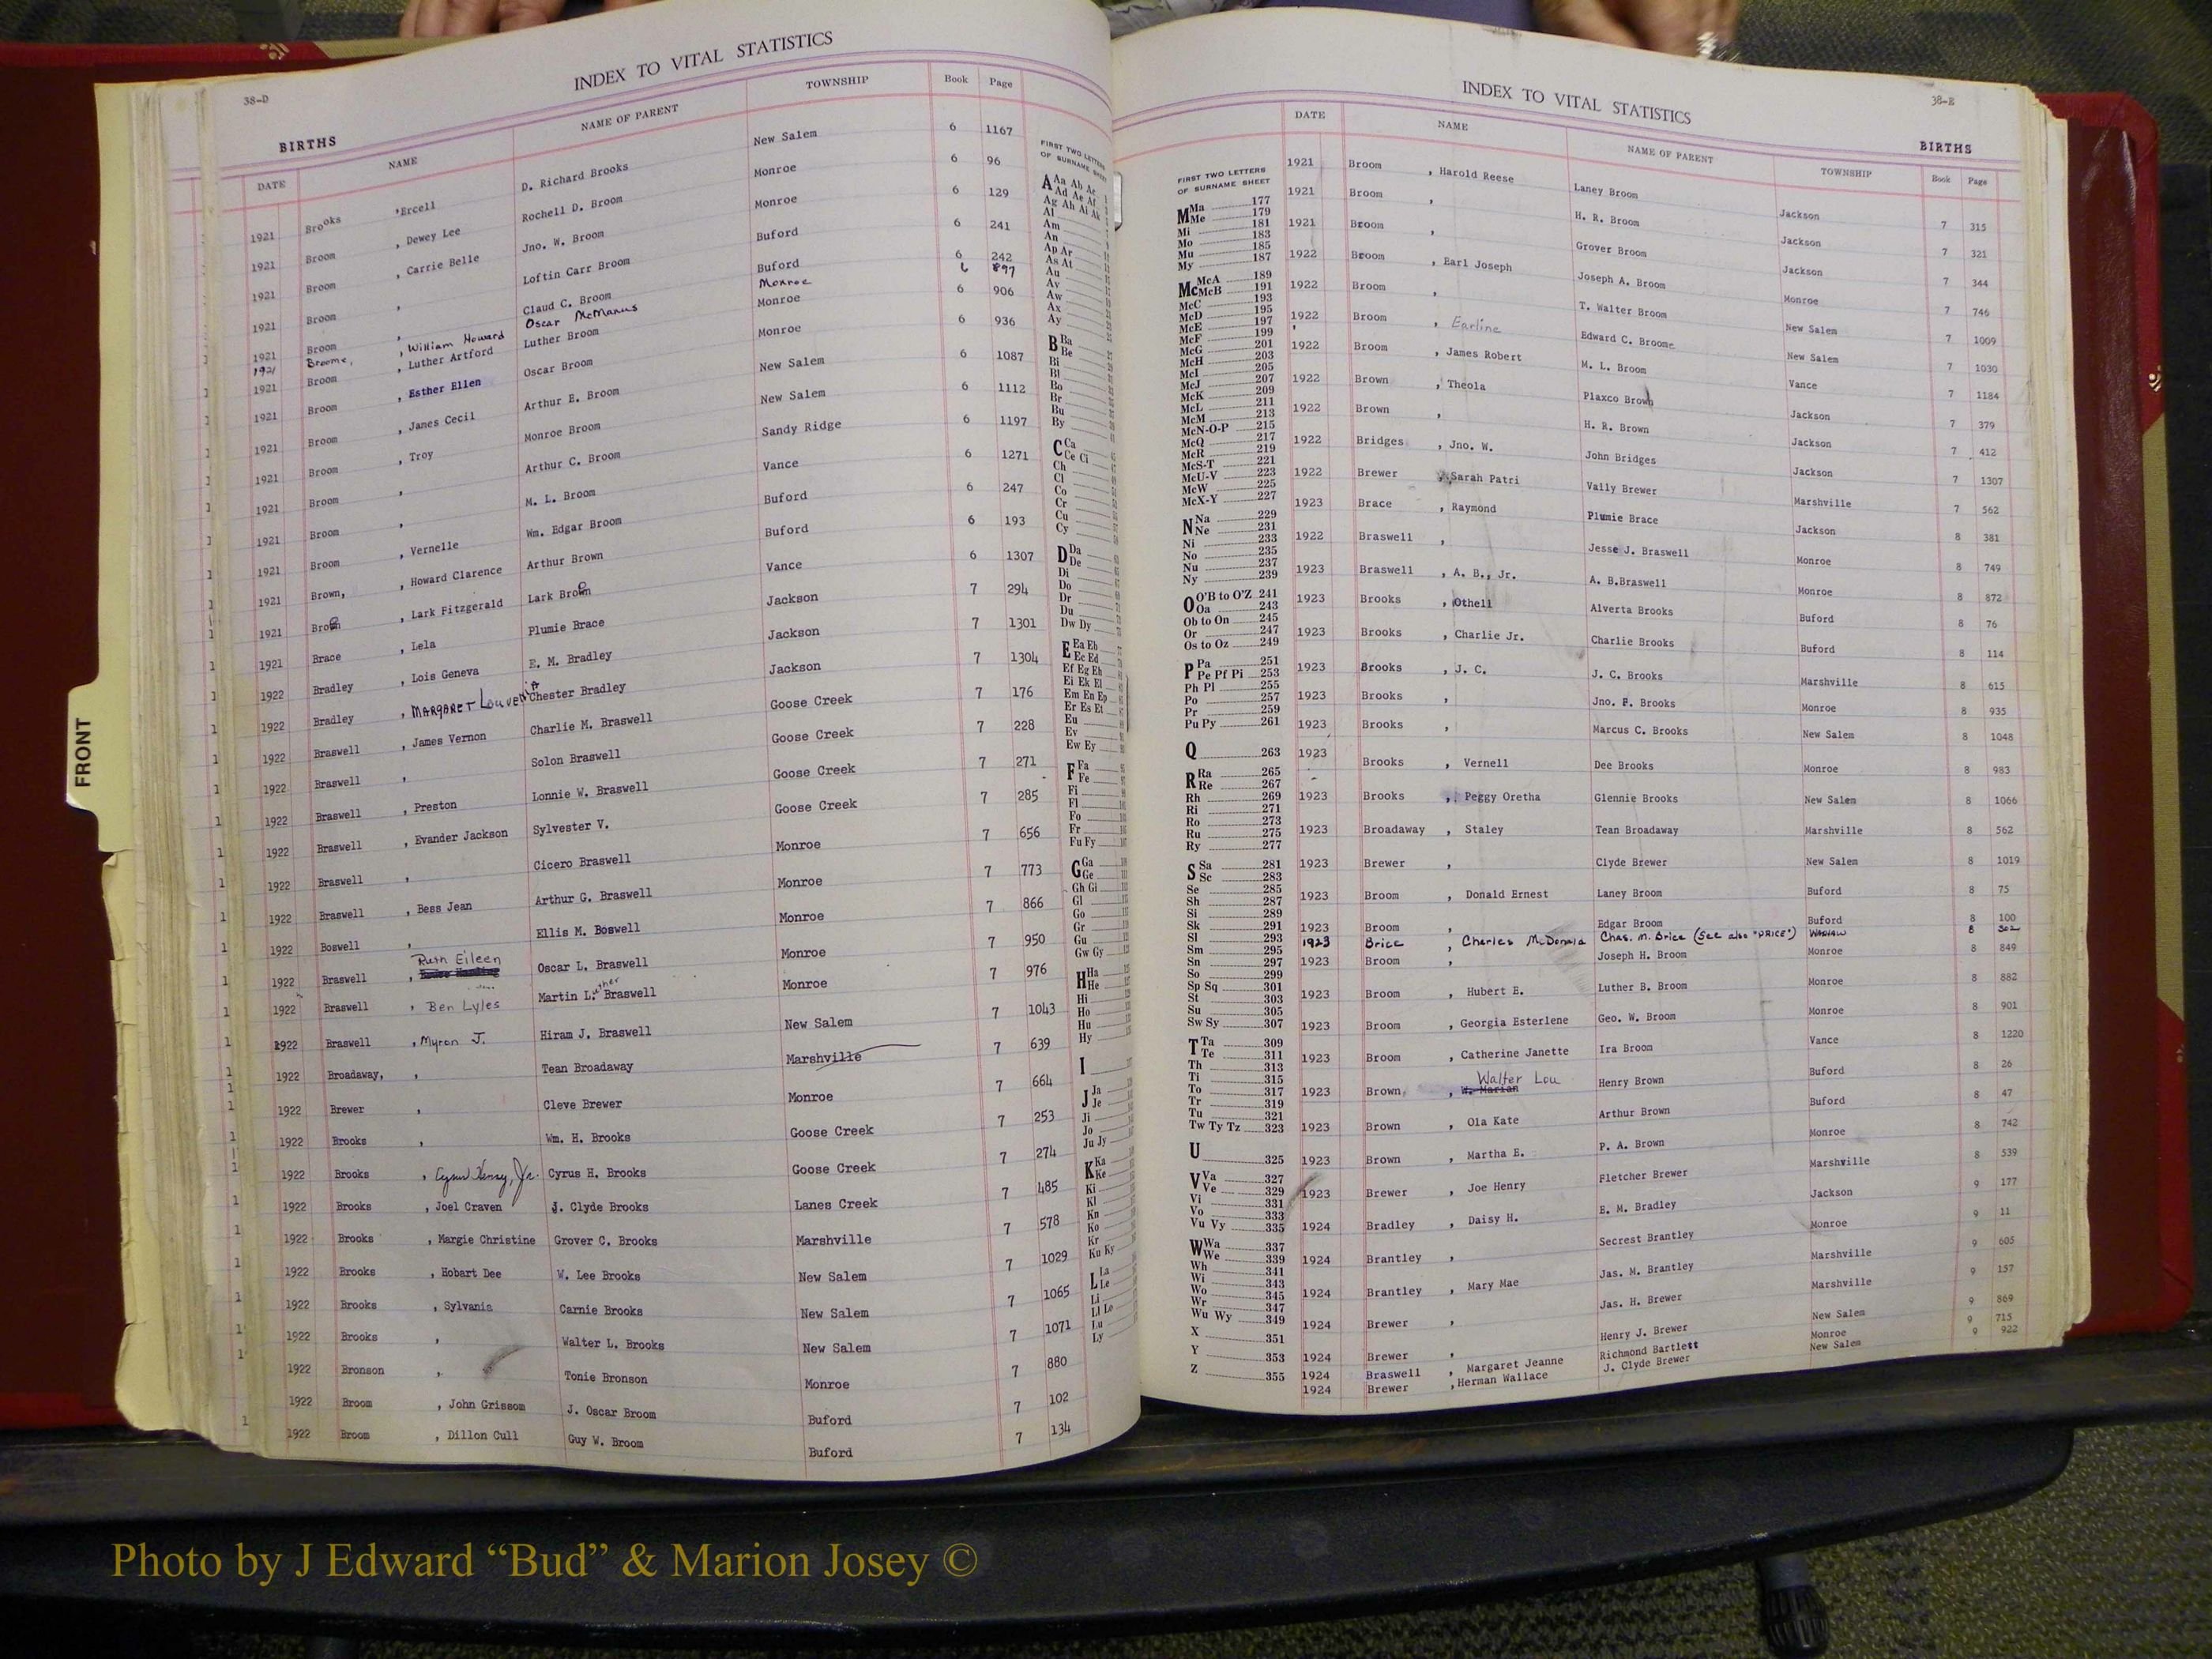 38-D
INDEX TO VITAL STATISTICS
BIRTHS
DATE NAME NAME OF PARENT TOWNSHIP Book Page
1921 Brooks , Ercell D. Richard Brooks New Salem 6 1167
1921 Broom , Dewey Lee Rochell D. Broom Monroe 6 96
1921 Broom , Carrie Belle Jno. W. Broom Monroe 6 129
1921 Broom , Loftin Carr Broom Buford 6 241
1921 Broom , Claud C. Broom Buford 6 242
1921 Broome, , William Howard Oscar McManus Monroe 6 897
1921 Broom , Luther Artford Luther Broom Monroe 6 906
1921 Broom , Esther Ellen Oscar Broom Monroe 6 936
1921 Broom , James Cecil Arthur E. Broom New Salem 6 1087
1921 Broom , Troy Monroe Broom New Salem 6 1112
1921 Broom , Arthur C. Broom Sandy Ridge 6 1197
1921 Broom , M. L. Broom Vance 6 1271
1921 Broom , Vernelle Wm. Edgar Broom Buford 6 247
1921 Brown, , Howard Clarence Arthur Brown Buford 6 193
1921 , Lark Fitzgerald Lark Vance 6 1307
1921 Brace , Lela Plumie Brace Jackson 7 294
1922 Bradley , Lois Geneva E. M. Bradley Jackson 7 1301
1922 Bradley , MARGARET LOUVENIA Chester Bradley Jackson 7 1304
1922 Braswell , James Vernon Charlie M. Braswell Goose Creek 7 176
1922 Braswell , Solon Braswell Goose Creek 7 228
1922 Braswell , Preston Lonnie W. Braswell Goose Creek 7 271
1922 Braswell , Evander Jackson Sylvester V. Goose Creek 7 285
1922 Braswell , Cicero Braswell Monroe 7 656
1922 Braswell , Bess Jean Arthur G. Braswell Monroe 7 773
1922 Boswell , Ellis M. Boswell Monroe 7 866
1922 Braswell , Ruth Eileen Oscar L. Braswell Monroe 7 950
1922 Braswell , Ben Lyles Martin Luther Braswell Monroe 7 976
1922 Braswell , Myron J. Hiram J. Braswell New Salem 7 1043
1922 Broadaway, , Tean Broadaway Marshville 7 639
1922 Brewer , Cleve Brewer Monroe 7 664
1922 Brooks , Wm. H. Brooks Goose Creek 7 253
1922 Brooks , Cyrus Henry, Jr. Cyrus H. Brooks Goose Creek 7 274
1922 Brooks , Joel Craven J. Clyde Brooks Lanes Creek 7 485
1922 Brooks , Margie Christine Grover C. Brooks Marshville 7 578
1922 Brooks , Hobart Dee W. Lee Brooks New Salem 7 1029
1922 Brooks , Sylvania Carnie Brooks New Salem 7 1065
1922 Brooks , Walter L. Brooks New Salem 7 1071
1922 Bronson , Tonie Bronson Monroe 7 880
1922 Broom , John Grissom J. Oscar Broom Buford 7 102
1922 Broom , Dillon Cull Guy W. Broom Buford 7 134
FRONT
FIRST TWO LETTERS
OF SURNAME SHEET
A Aa Ab Ac
Ad Ae Af
Ag Ah Ai Ak
Al
Am
An
Ap Ar
As At
Au
Av
Aw
Ax
Ay
B Ba
Be
Bi
Bl
Bo
Br
Bu
By
C Ca
Ce Ci
Ch
Cl
Co
Cr
Cu
Cy
D Da
De
Di
Do
Dr
Du
Dw Dy
E Ea Eb
Ec Ed
Ef Eg Eh
Ei Ek El
Em En Ep
Er Es Et
Eu
Ev
Ew Ey
F Fa
Fe
Fi
Fl
Fo
Fr
Fu Fy
G Ga
Ge
Gh Gi
Gl
Go
Gr
Gu
Gw Gy
H Ha
He
Hi
Ho
Hu
Hy
I
J Ja
Je
Ji
Jo
Ju Jy
K Ka
Ke
Ki
Kl
Kn
Ko
Kr
Ku Ky
L La
Le
Li
Ll Lo
Lu
Ly
INDEX TO VITAL STATISTICS
38-E
BIRTHS
FIRST TWO LETTERS
OF SURNAME SHEET
M Ma 177
Me 179
Mi 181
Mo 183
Mu 185
My 187
Mc McA 189
McB 191
McC 193
McD 195
McE 197
McF 199
McG 201
McH 203
McI 205
McJ 207
McK 209
McL 211
McM 213
McN-O-P 215
McQ 217
McR 219
McS-T 221
McU-V 223
McW 225
McX-Y 227
N Na 229
Ne 231
Ni 233
No 235
Nu 237
Ny 239
O O'B to O'Z 241
Oa 243
Ob to On 245
Or 247
Os to Oz 249
P Pa 251
Pe Pf Pi 253
Ph Pl 255
Po 257
Pr 259
Pu Py 261
Q 263
R Ra 265
Re 267
Rh 269
Ri 271
Ro 273
Ru 275
Ry 277
S Sa 281
Sc 283
Se 285
Sh 287
Si 289
Sk 291
Sl 293
Sm 295
Sn 297
So 299
Sp Sq 301
St 303
Su 305
Sw Sy 307
T Ta 309
Te 311
Th 313
Ti 315
To 317
Tr 319
Tu 321
Tw Ty Tz 323
U 325
V Va 327
Ve 329
Vi 331
Vo 333
Vu Vy 335
W Wa 337
We 339
Wh 341
Wi 343
Wo 345
Wr 347
Wu Wy 349
X 351
Y 353
Z 355
DATE NAME NAME OF PARENT TOWNSHIP Book Page
1921 Broom , Harold Reese Laney Broom Jackson 7 315
1921 Broom , H. R. Broom Jackson 7 321
1921 Broom , Grover Broom Jackson 7 344
1922 Broom , Earl Joseph Joseph A. Broom Monroe 7 746
1922 Broom , T. Walter Broom New Salem 7 1009
1922 Broom , Earline Edward C. Broome New Salem 7 1030
1922 Broom , James Robert M. L. Broom Vance 7 1184
1922 Brown , Theola Plaxco Brown Jackson 7 379
1922 Brown , H. R. Brown Jackson 7 412
1922 Bridges , Jno. W. John Bridges Jackson 7 1307
1922 Brewer , Sarah Patri Vaily Brewer Marshville 7 562
1923 Brace , Raymond Plumie Brace Jackson 8 381
1922 Braswell , Jesse J. Braswell Monroe 8 749
1923 Braswell , A. B., Jr. A. B.Braswell Monroe 8 872
1923 Brooks , Othell Alverta Brooks Buford 8 76
1923 Brooks , Charlie Jr. Charlie Brooks Buford 8 114
1923 Brooks , J. C. J. C. Brooks Marshville 8 615
1923 Brooks , Jno. F. Brooks Monroe 8 935
1923 Brooks , Marcus C. Brooks New Salem 8 1048
1923 Brooks , Vernell Dee Brooks Monroe 8 983
1923 Brooks , Peggy Oretha Glennie Brooks New Salem 8 1066
1923 Broadaway , Staley Tean Broadaway Marshville 8 562
1923 Brewer , Clyde Brewer New Salem 8 1019
1923 Broom , Donald Ernest Laney Broom Buford 8 75
1923 Broom , Edgar Broom Buford 8 100
1923 Brice , Charles McDonald Chas. M. Brice (See also "PRICE") 8 302
1923 Broom , Joseph H. Broom Monroe 8 849
1923 Broom , Hubert E. Luther B. Broom Monroe 8 882
1923 Broom , Georgia Esterlene Geo. W. Broom Monroe 8 901
1923 Broom , Catherine Janette Ira Broom Vance 8 1220
1923 Brown , Walter Lou W. Marian Henry Brown Buford 8 26
1923 Brown , Ola Kate Arthur Brown Buford 8 47
1923 Brown , Martha E. P. A. Brown Monroe 8 742
1923 Brewer , Joe Henry Fletcher Brewer Marshville 8 539
1924 Bradley , Daisy H. E. M. Bradley Jackson 9 177
1924 Brantley , Secrest Brantley Monroe 9 11
1924 Brantley , Mary Mae Jas. M. Brantley Marshville 9 605
1924 Brewer , Jas. H. Brewer Marshville 9 157
1924 Brewer , Henry J. Brewer New Salem 9 869
1924 Braswell , Margaret Jeanne Richmond Bartlett Monroe 9 715
1924 Brewer , Herman Wallace J. Clyde Brewer New Salem 9 922
Photo by J Edward “Bud” & Marion Josey ©